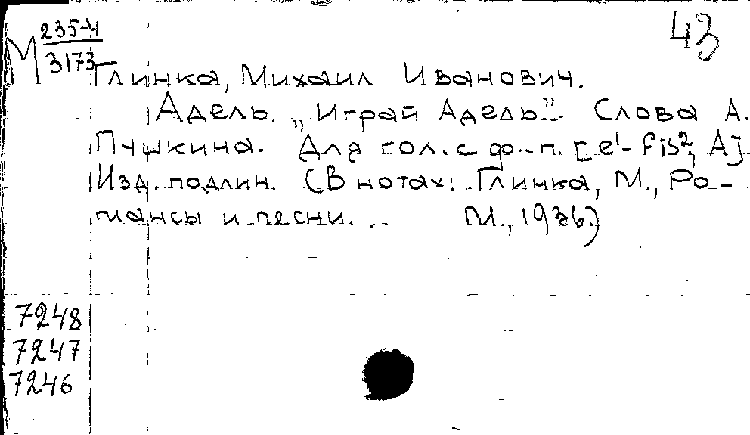 43
М 235-4
3173
Глинка, Михаил Иванович.
Адель. „Играй Адель". Слова А.
Пушкина. Для гол. с ф.-п. [e¹-fis², A].
Изд. подлин. (В нотах: Глинка, М., Ро-
мансы и песни... М., 1936)
7248
7247
7246